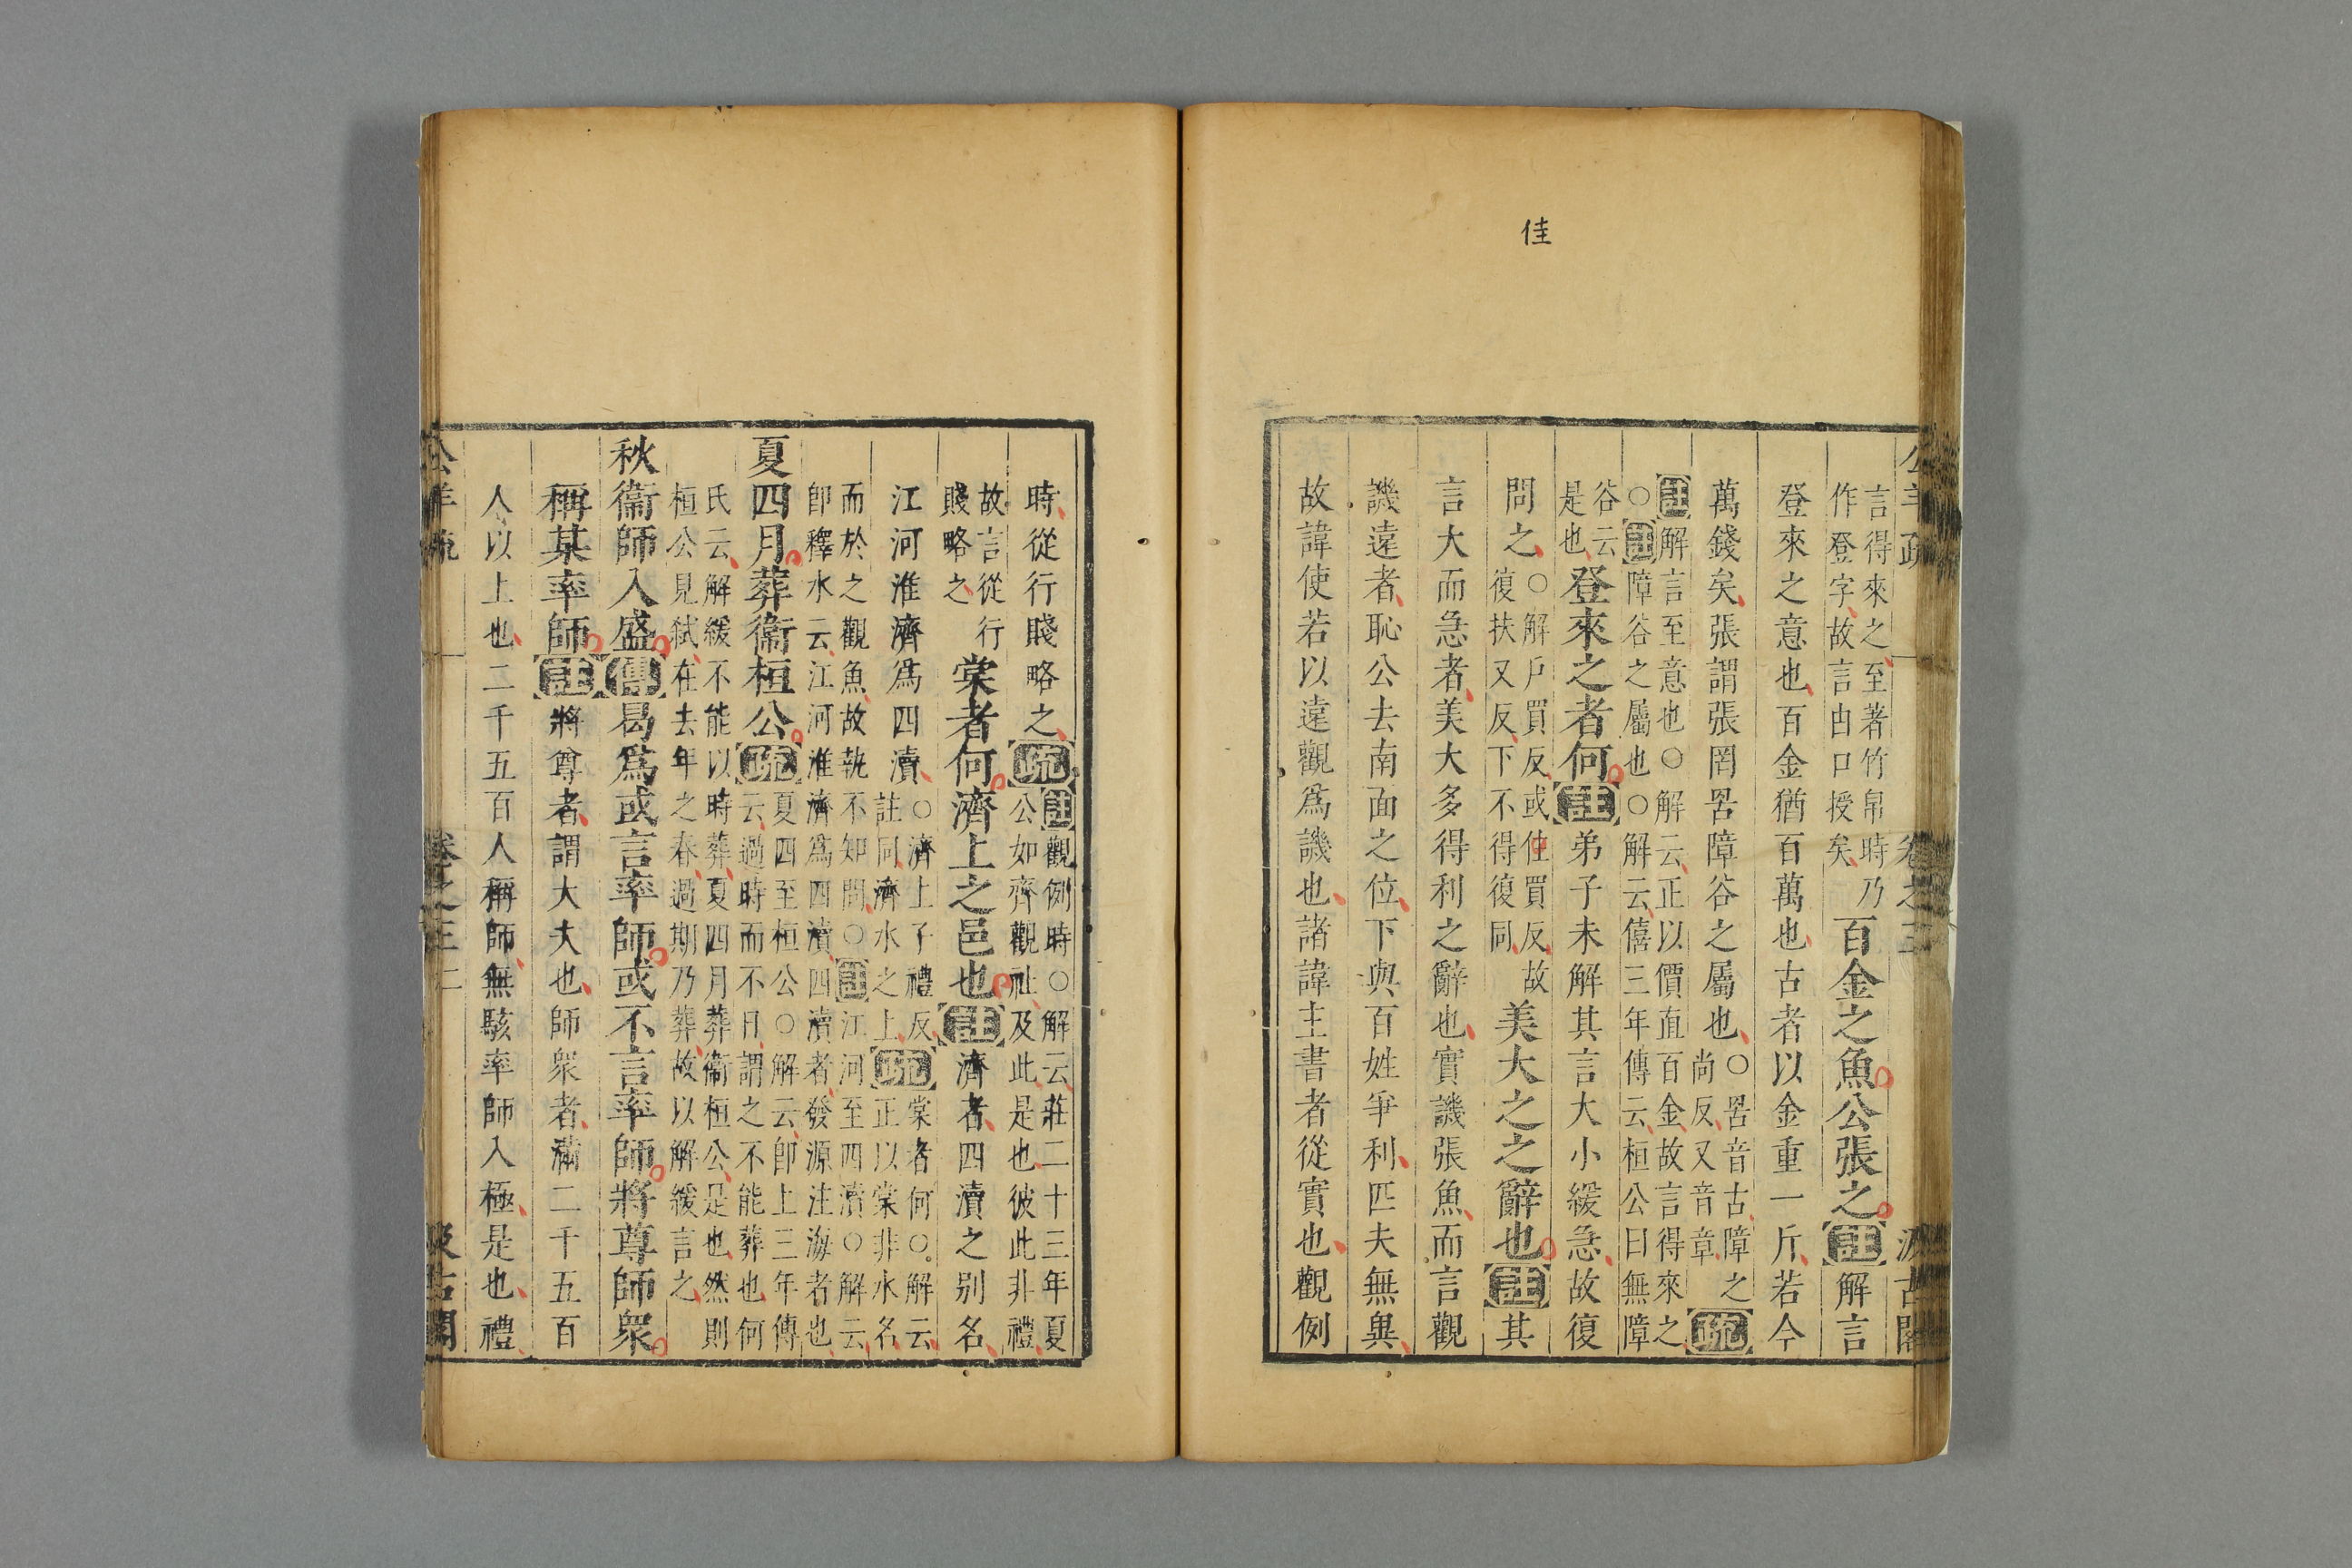 佳
公羊疏 卷之三 汲古閣
言得來之至著竹帛時乃
作登字故言由口授矣
百金之魚公張之註解言
登來之意也百金猶百萬也古者以金重一斤若今
萬錢矣張謂張罔罟障谷之屬也
○罟音古障之
尚反又音章
疏
註解言至意也○解云正以價直百金故言得來之
○註障谷之屬也○解云僖三年傳云桓公曰無障
谷云
是也
登來之者何註弟子未解其言大小緩急故復
問之
○解戶買反或佳買反故
復扶又反下不得復同
美大之之辭也註其
言大而急者美大多得利之辭也實譏張魚而言觀
譏遠者恥公去南面之位下與百姓爭利匹夫無異
故諱使若以遠觀爲譏也諸諱主書者從實也觀例
時從行賤略之疏
註觀例時○解云莊二十三年夏
公如齊觀社及此是也彼此非禮
故言從行
賤略之
棠者何濟上之邑也註濟者四瀆之别名
江河淮濟爲四瀆
○濟上子禮反
註同濟水之上
疏
棠者何○解云
正以棠非水名
而於之觀魚故執不知問○註江河至四瀆○解云
卽釋水云江河淮濟爲四瀆四瀆者發源注海者也
夏四月葬衞桓公疏
夏四至桓公○解云卽上三年傳
云過時而不日謂之不能葬也何
氏云解緩不能以時葬夏四月葬衞桓公是也然則
桓公見弑在去年之春過期乃葬故以解緩言之
秋衞師入盛傳曷爲或言率師或不言率師將尊師衆
稱某率師註將尊者謂大夫也師衆者滿二千五百
人以上也二千五百人稱師無駭率師入極是也禮
公羊疏 卷之三 二 汲古閣